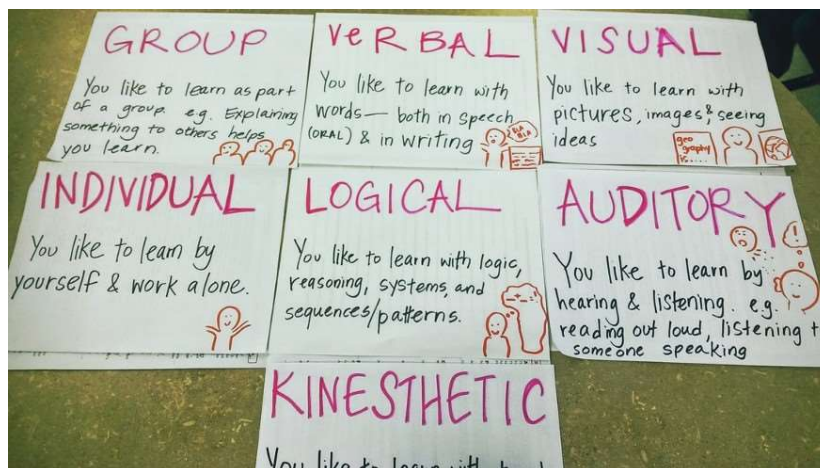 GROUP
You like to learn as part
of a group. e.g. Explaining
something to others helps
you learn.
VeRBAL
You like to learn with
words— both in speech
(ORAL) & in writing
BLA
BLA
VISUAL
You like to learn with
pictures, images, & seeing
ideas
geo
graphy
INDIVIDUAL
You like to learn by
yourself & work alone.
LOGICAL
You like to learn with logic,
reasoning, systems, and
sequences/patterns.
AUDITORY
You like to learn by
hearing & listening. e.g.
reading out loud, listening t
someone speaking
KINESTHETIC
You like to learn with